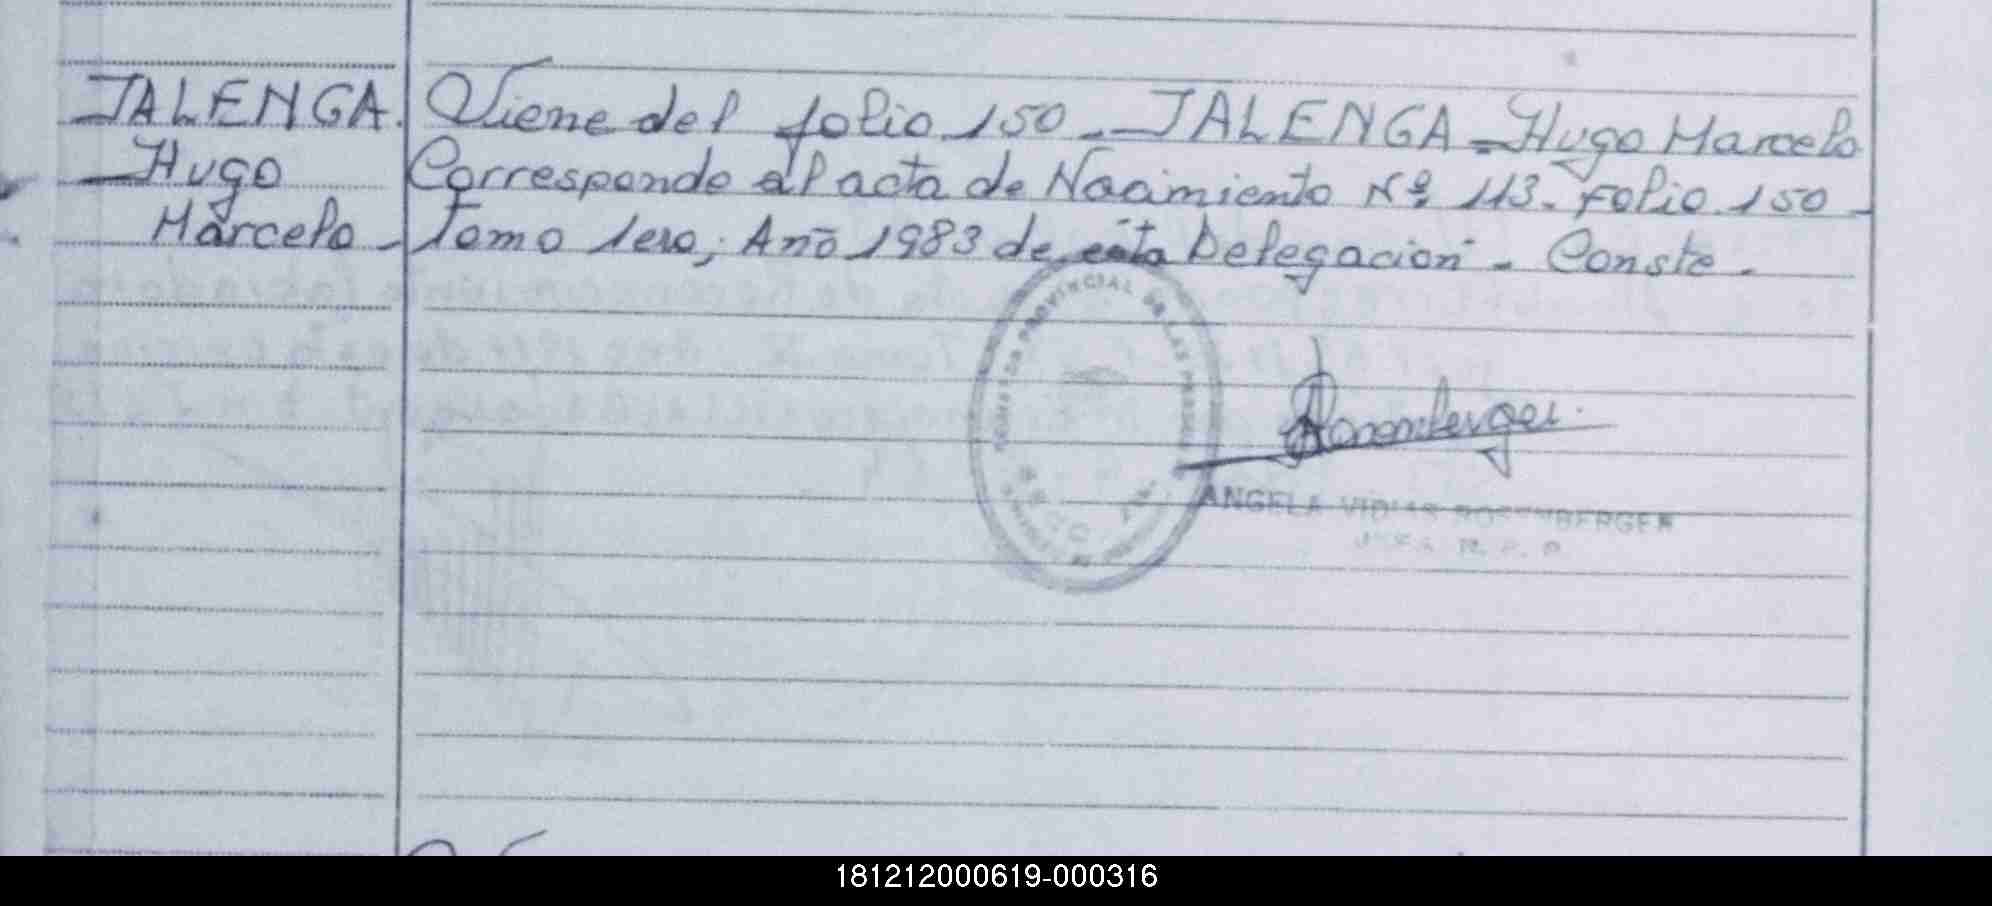 JALENGA.
Hugo
Marcelo -
Viene del folio 150 - JALENGA = Hugo Marcelo
Corresponde al acta de Nacimiento Nº 113. Folio 150 -
Tomo 1ero, Año 1983 de esta Delegación - Conste -
PROVINCIAL DE LAS PERSONAS
Rosemberger
ANGELA ROSENBERGER
181212000619-000316